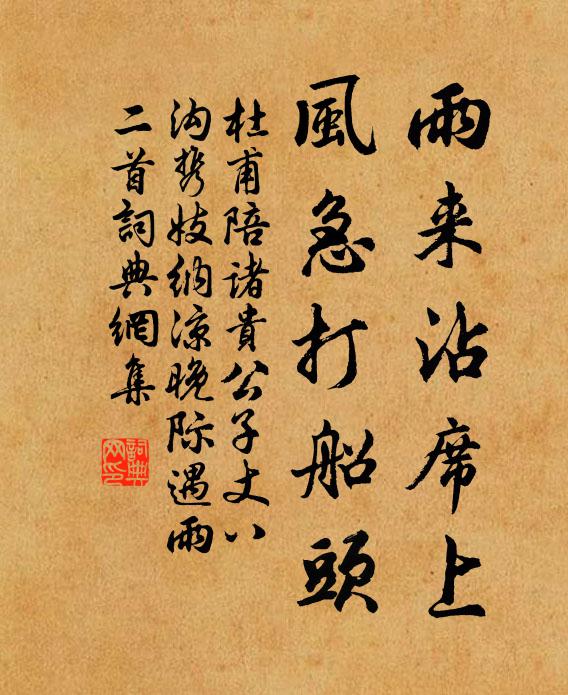 雨来沾席上
風急打船頭
杜甫陪諸貴公子丈八
沟携妓納凉晚际遇雨
二首詞典網集
詞典网印